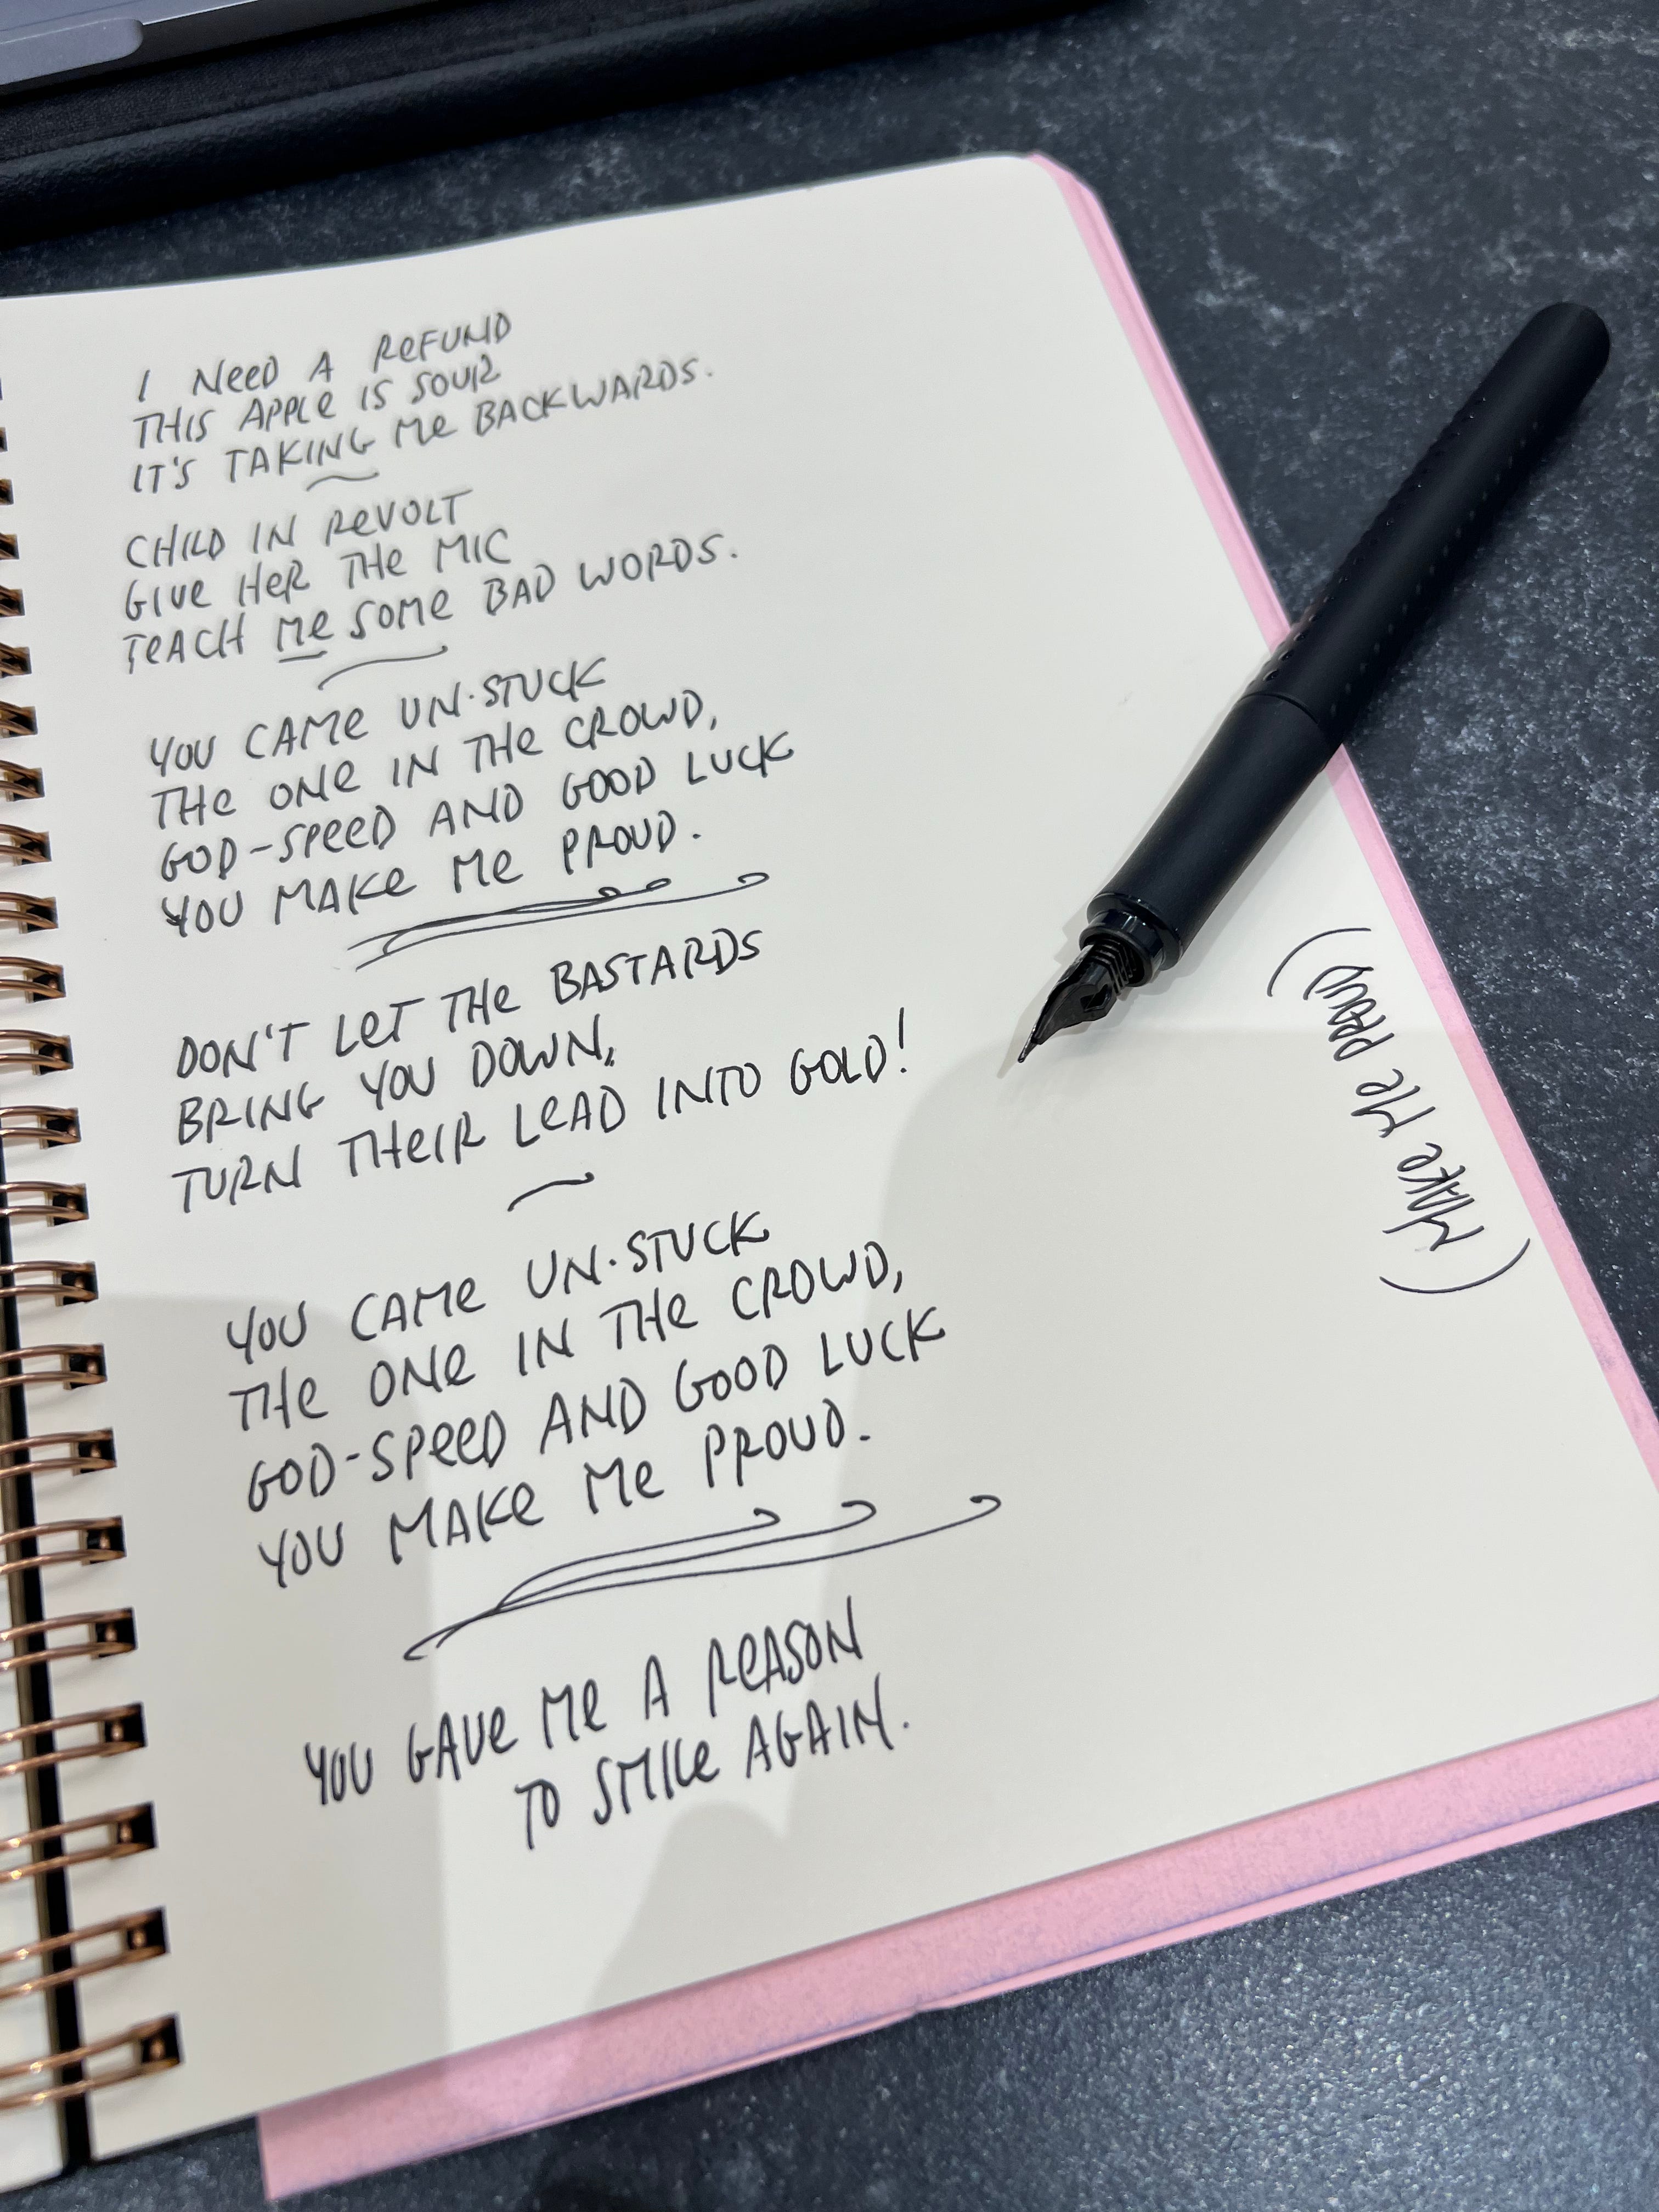 I NEED A REFUND
THIS APPLE IS SOUR
IT'S TAKING ME BACKWARDS.
CHILD IN REVOLT
GIVE HER THE MIC
TEACH ME SOME BAD WORDS.
YOU CAME UN·STUCK
THE ONE IN THE CROWD,
GOD-SPEED AND GOOD LUCK
YOU MAKE ME PROUD.
DON'T LET THE BASTARDS
BRING YOU DOWN,
TURN THEIR LEAD INTO GOLD!
YOU CAME UN·STUCK
THE ONE IN THE CROWD,
GOD-SPEED AND GOOD LUCK
YOU MAKE ME PROUD.
YOU GAVE ME A REASON
TO SMILE AGAIN.
(MAKE ME PROUD)